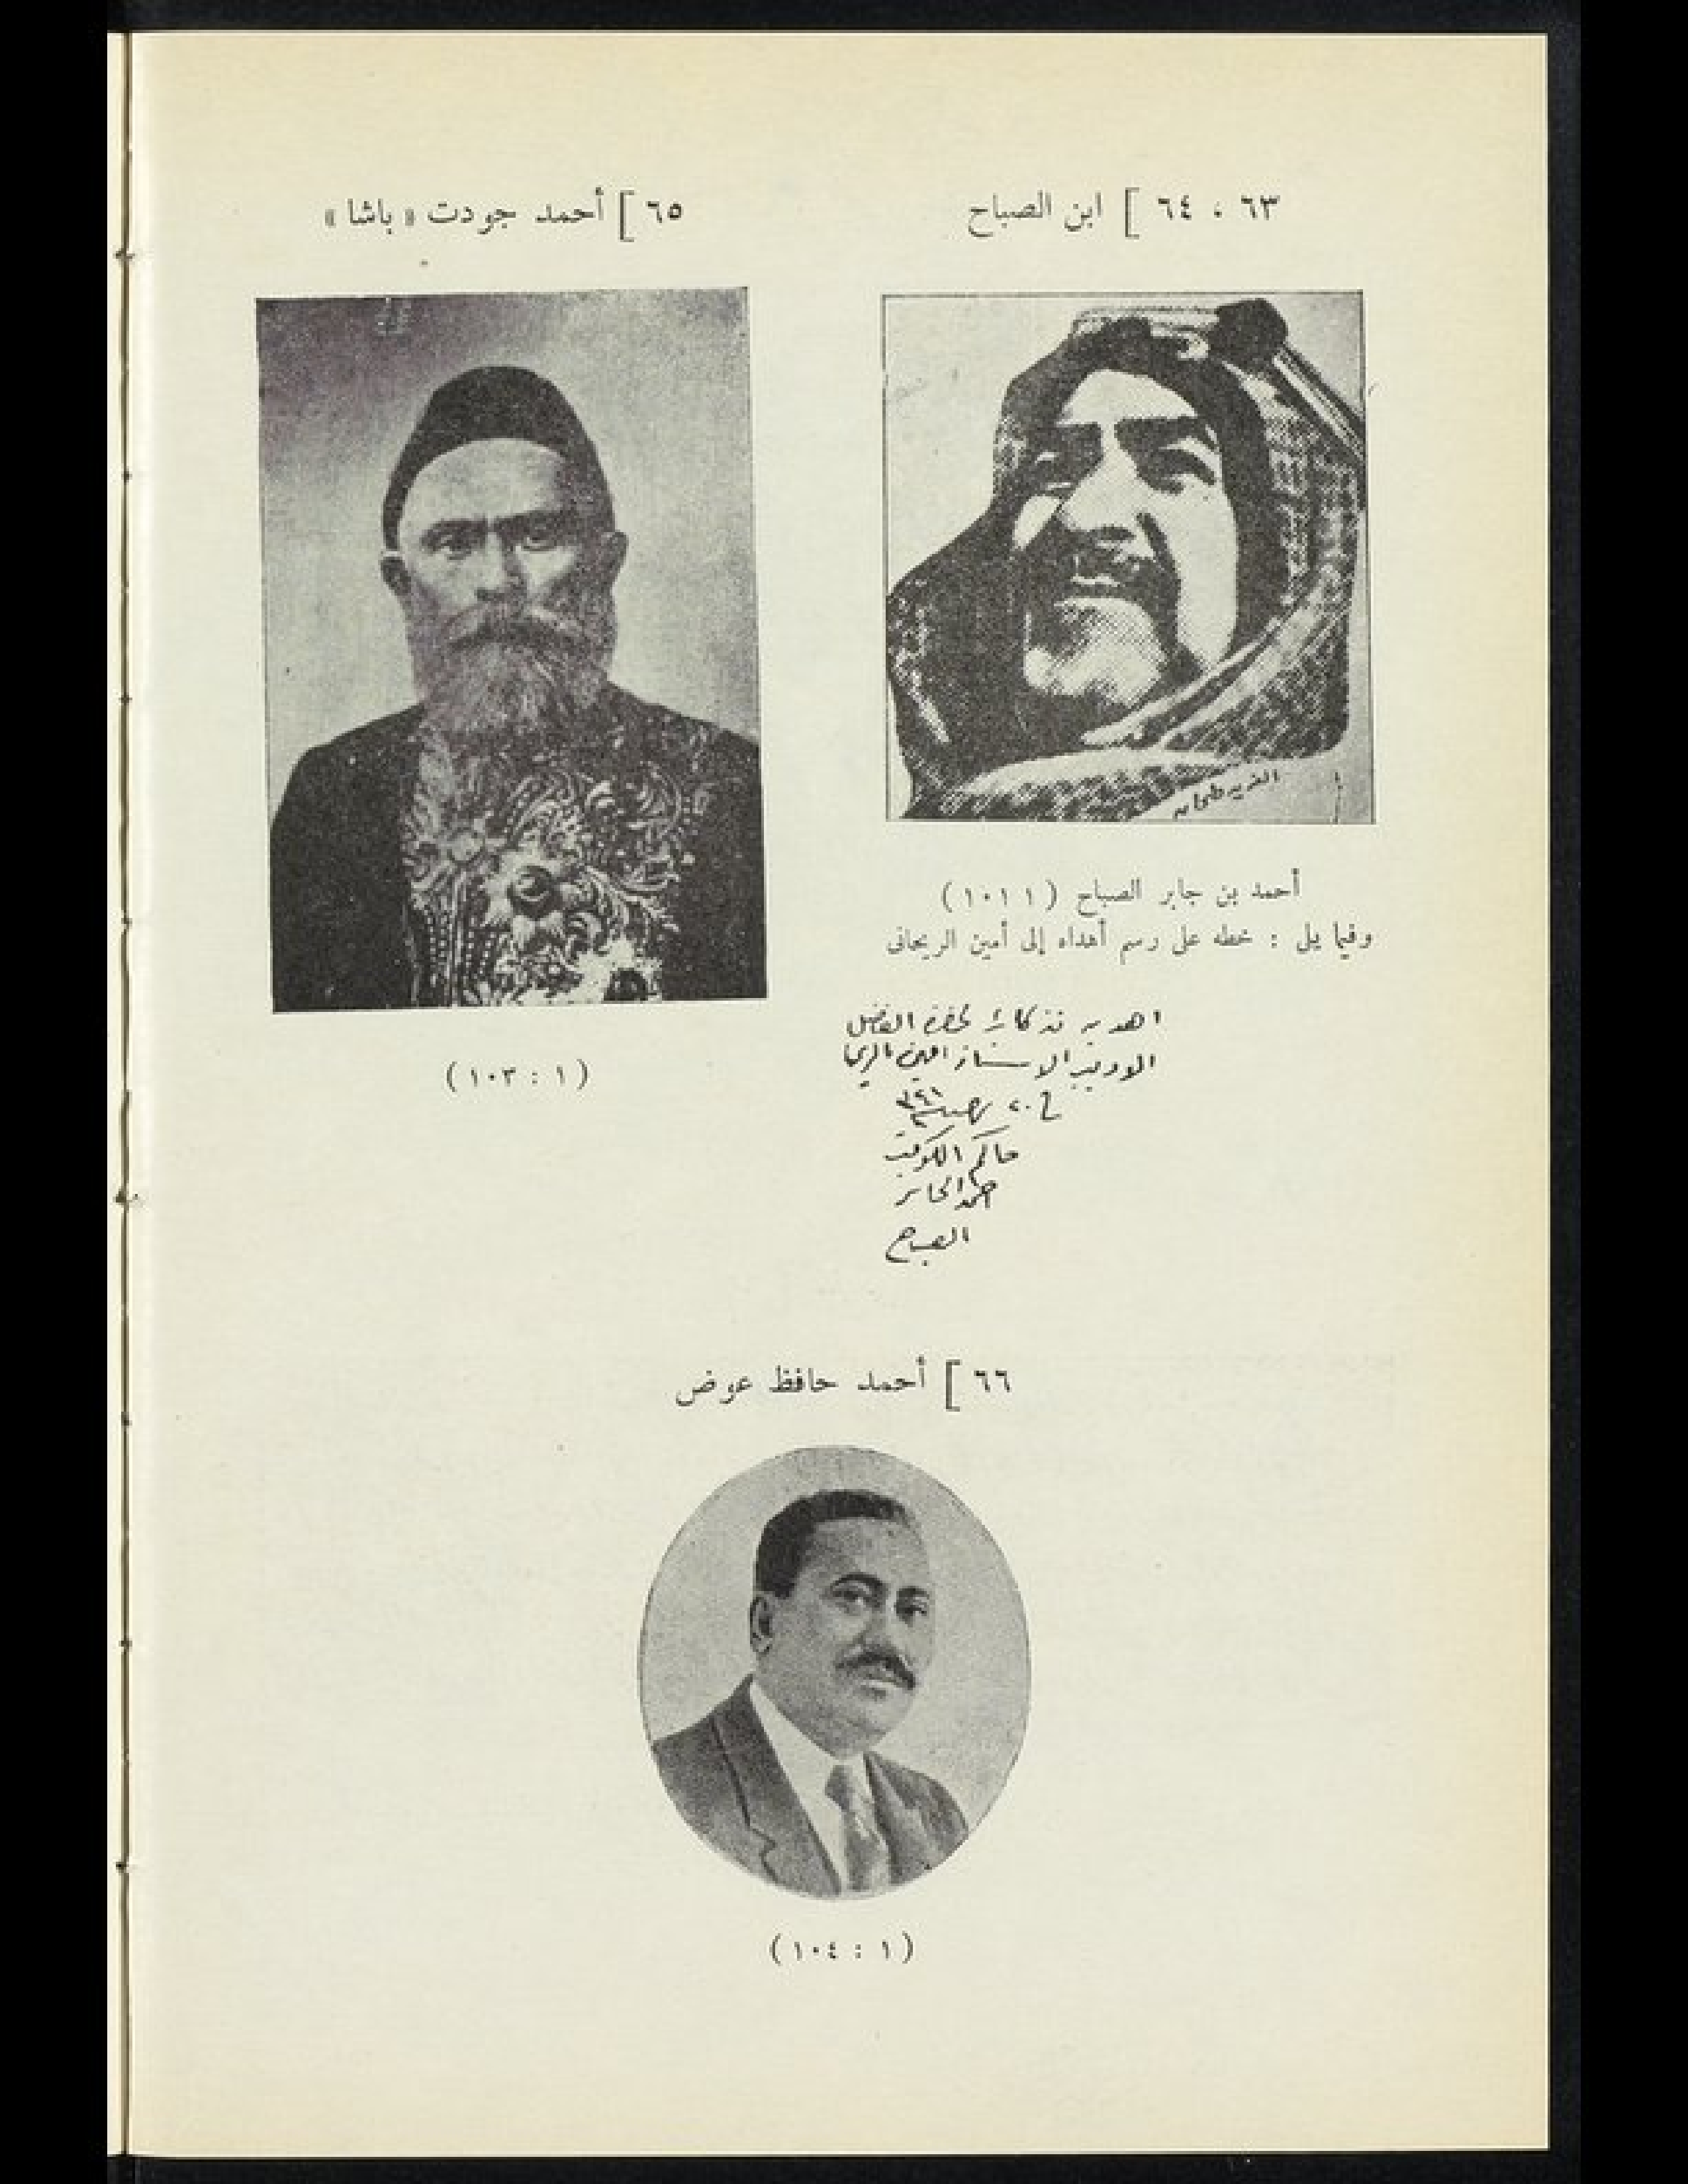 ٦٣ ، ٦٤ ] ابن الصباح
أحمد بن جابر الصباح ( ١٠١ ١ )
وفيما يلى : خطه على رسم أهداه إلى أمين الريحانى
اهديه تذكارًا لحضرة الفاضل
الاديب الاستاذ امين الريحا
في ٢٠
حاكم الكويت
احمد الجابر
الصباح
٦٥ ] أحمد جودت « باشا »
( ١ : ١٠٣ )
٦٦ ] أحمد حافظ عوض
( ١ : ١٠٤ )